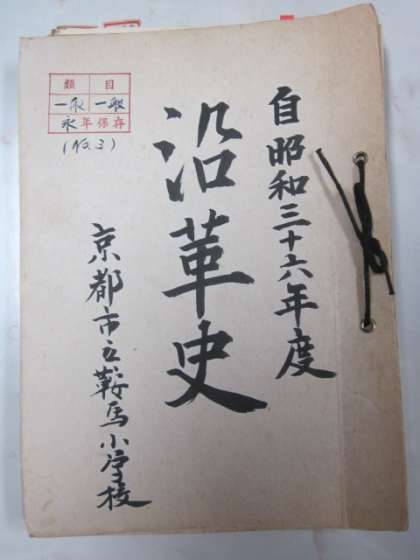 自昭和三十六年度
沿革史
京都市立鞍馬小学校
類 目
一般 一般
永年保存
(No.3)